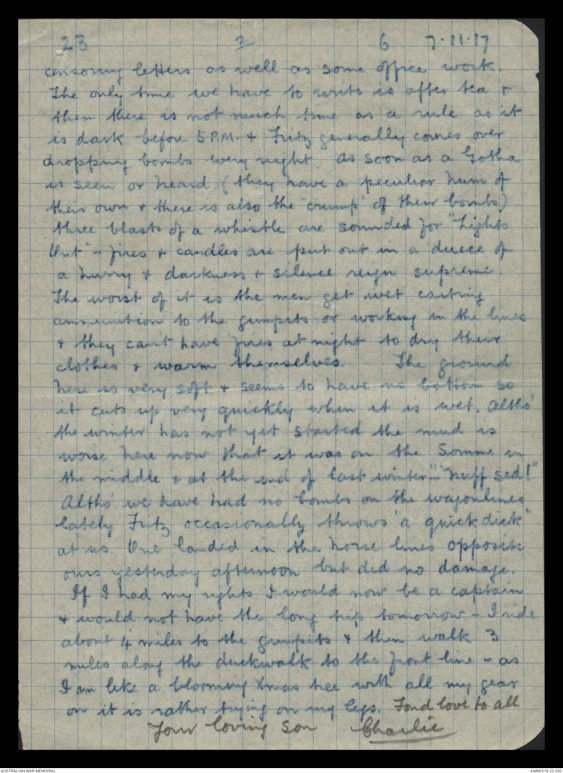 23 3 6 7.11.17
censoring letters as well as some office work.
The only time we have to write is after tea &
then there is not much time as a rule as it
is dark before 5 P.M. & Fritz generally comes over
dropping bombs every night. As soon as a Gotha
is seen or heard (they have a peculiar hum of
their own & there is also the "crump" of their bombs)
three blasts of a whistle are sounded for "Lights
Out" - fires & candles are put out in a deuce of
a hurry & darkness & silence reign supreme
The worst of it is the men get wet carting
ammunition to the gunpits or working in the lines
& they can't have fires at night to dry their
clothes & warm themselves. The ground
here is very soft & seems to have no bottom so
it cuts up very quickly when it is wet. Altho'
the winter has not yet started the mud is
worse here now that it was on the Somme in
the middle & at the end of last winter - "nuff sed!"
Altho' we have had no bombs on the wagonlines
lately Fritz occasionally throws "a quick dick"
at us. One landed in the horse lines opposite
ours yesterday afternoon but did no damage.
If I had my rights I would now be a captain
& would not have the long trip tomorrow - I ride
about 4 miles to the gunpits & then walk 3
miles along the duckwalk to the front line - as
I am like a blooming Xmas tree with all my gear
on it is rather trying on my legs. Fond love to all
Your loving son Charlie
AUSTRALIAN WAR MEMORIAL